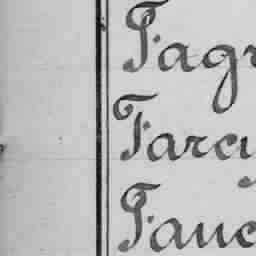 Fagr
Farcy
Fauc